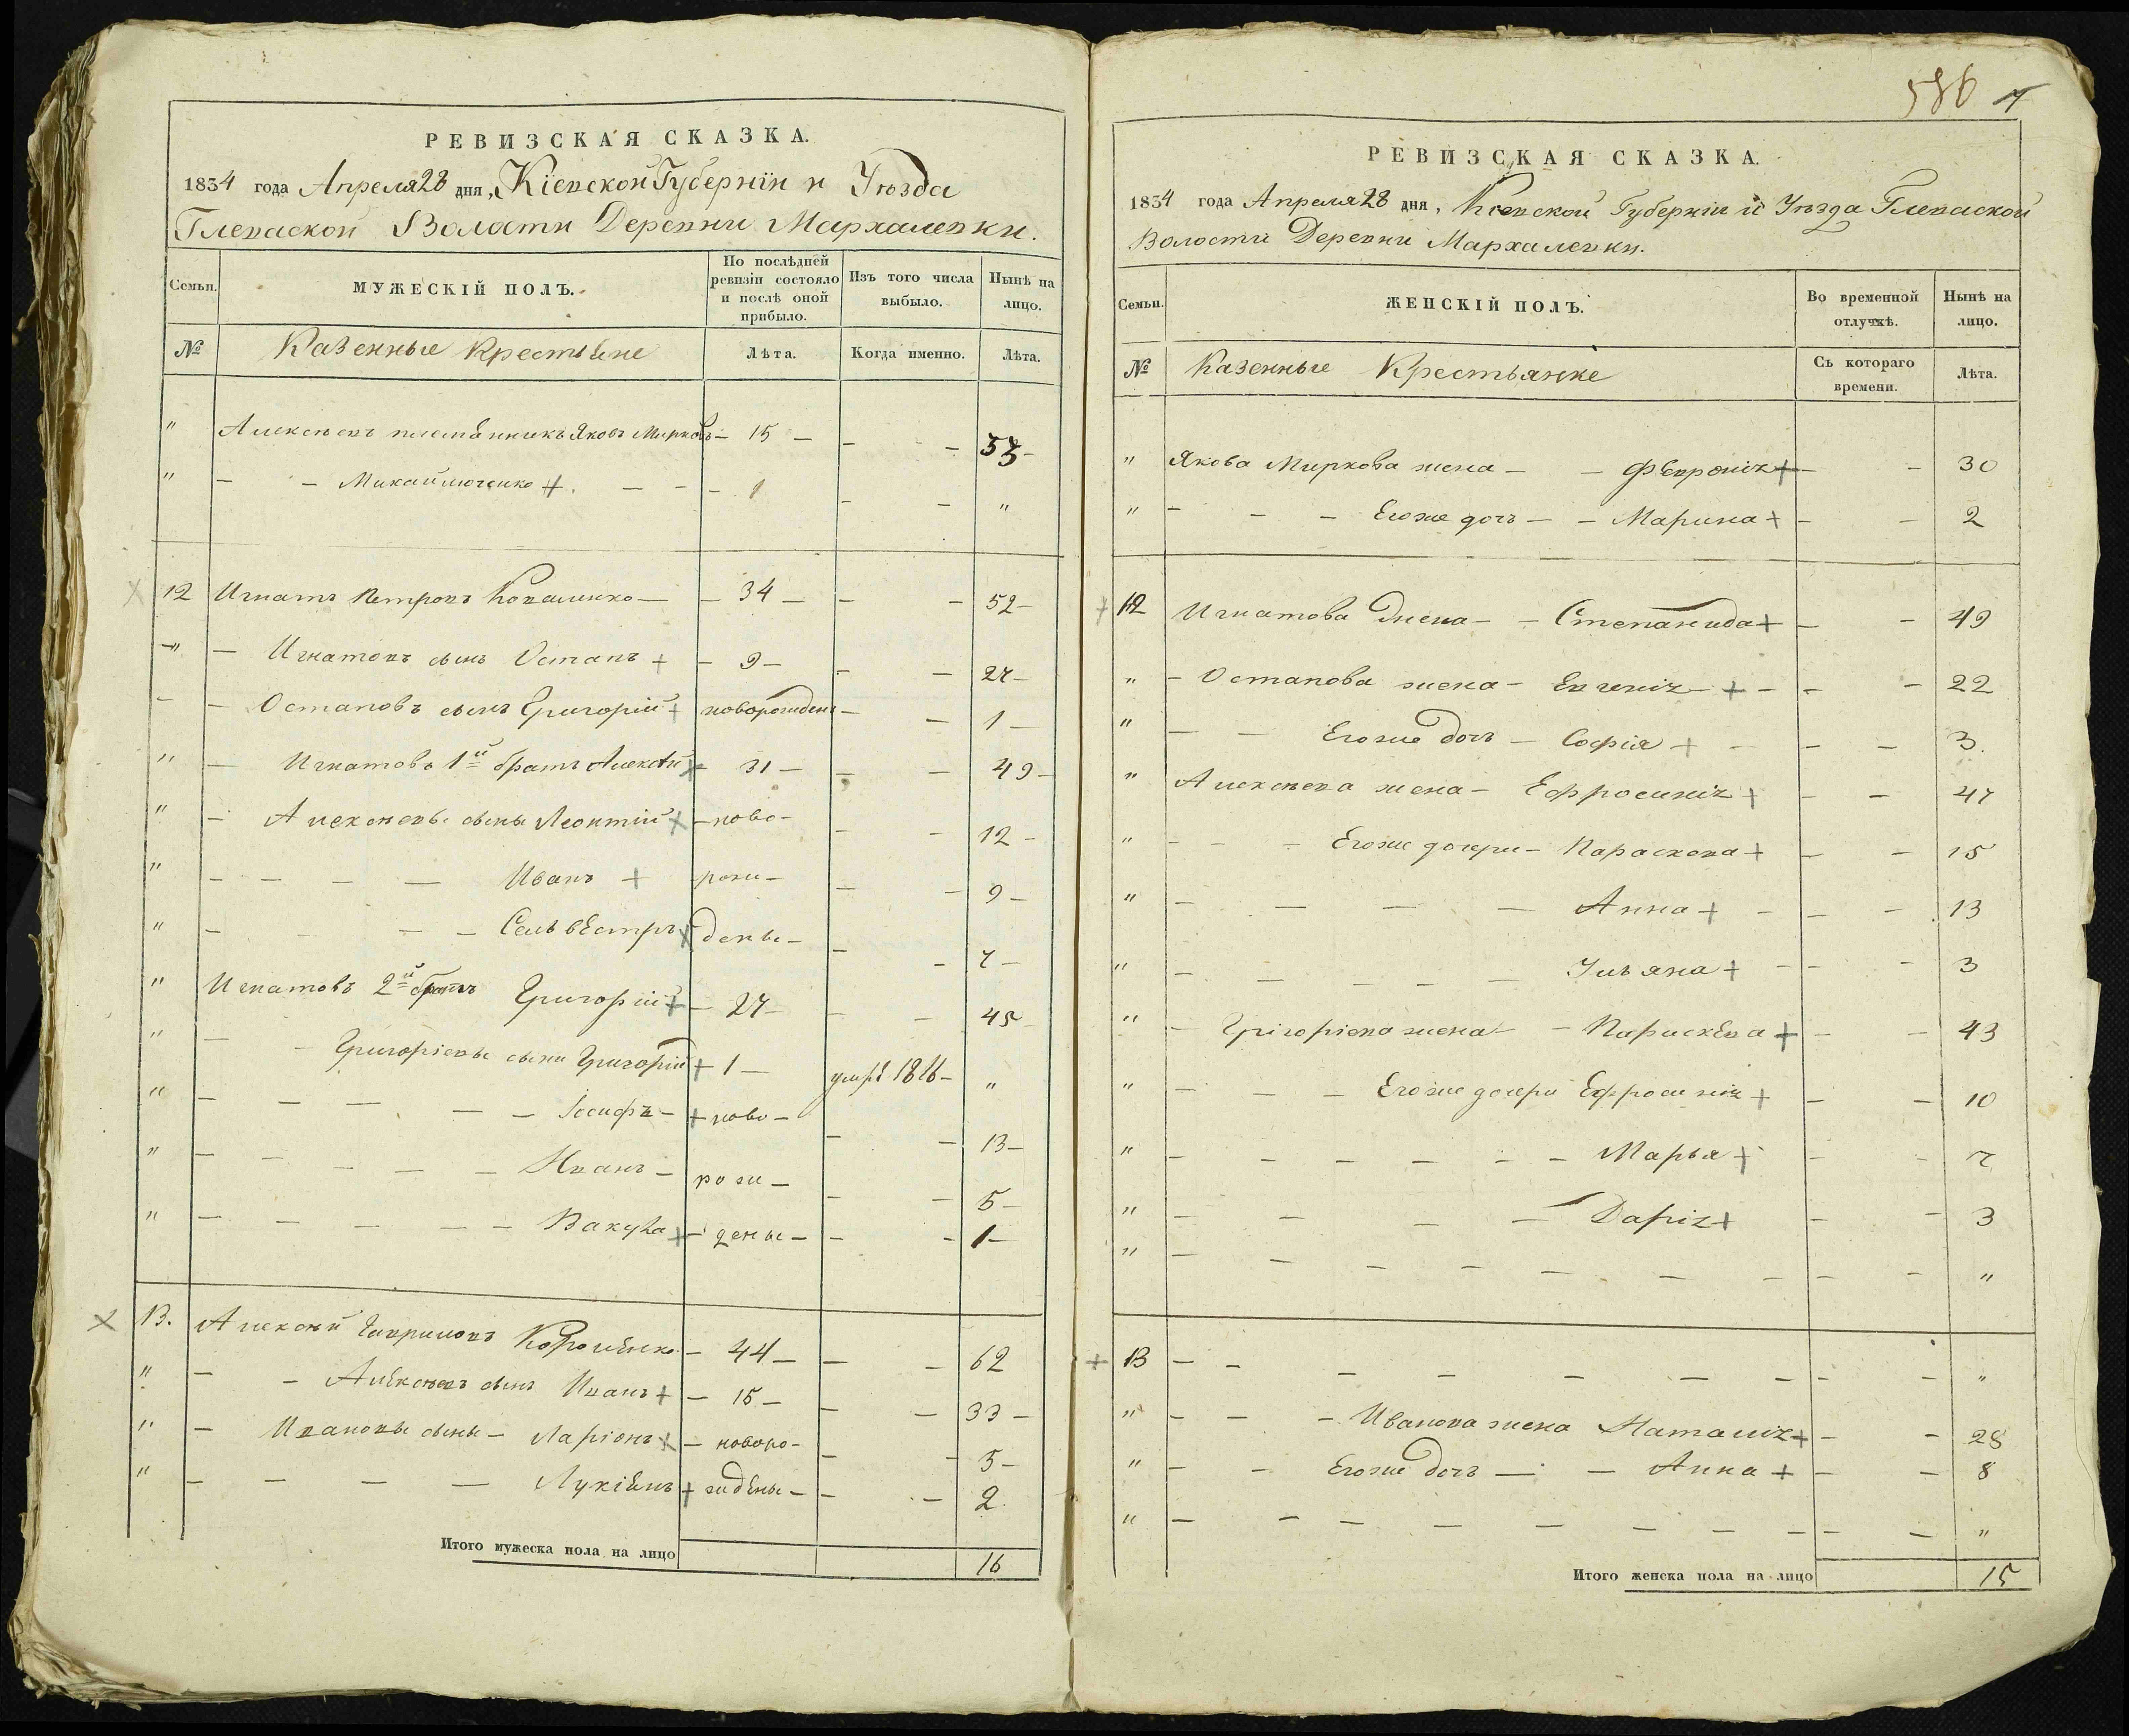 РЕВИЗСКАЯ СКАЗКА.
1834 года Апреля 28 дня, Кіевской Губерніи и Уезда
Глеваской Волости Деревни Мархалевки.
Семьи. МУЖЕСКІЙ ПОЛЪ. По послѣдней ревизіи состояло и послѣ оной прибыло. Изъ того числа выбыло. Нынѣ на лицо.
№ Казенные Крестьяне Лѣта. Когда именно. Лѣта.
" Алексеевъ племянникъ Яковъ Марковъ — 15 — — — 33 —
" — — Михайлюченко + — — — — — "
12 Игнатъ Петровъ Коваленко — — 34 — — — 52 —
" — Игнатовъ сынъ Остапъ + — 9 — — — 27 —
— — Остаповъ сынъ Григорій + новорожденъ — — 1 —
" — Игнатовъ 1й братъ Алексѣй + 31 — — — 49 —
" — Алексеевы сыны Леонтій + — ново — — — 12 —
" — — — — Иванъ + рож — — — 9 —
" — — — Сельвестръ + дены — — — 7 —
" Игнатовъ 2й братъ Григорій + — 27 — — — 45 —
" — — Григоріевы сыны Григорій + 1 — умре 1816 — "
" — — — — — Іосифъ — + ново — — — 13 —
" — — — — — Иванъ — рож — — — 5 —
" — — — — — Вакула + — дены — — — 1 —
13. Алексѣй Гавриловъ — 44 — — — 62
" — — Алексеевъ сынъ Иванъ + — 15 — — — 33 —
" — Ивановы сыны — Ларіонъ + — новоро — — — 5 —
" — — — — Лукіянъ + ждены — — — 2.
Итого мужеска пола на лицо 16
586
РЕВИЗСКАЯ СКАЗКА.
1834 года Апреля 28 дня, Кіевской Губерніи и Уезда Глеваской
Волости Деревни Мархалевки.
Семьи. ЖЕНСКІЙ ПОЛЪ. Во временной отлучкѣ. Нынѣ на лицо.
№ Казенные Крестьянке Съ котораго времени. Лѣта.
" Якова Маркова жена — — Февронія + — — 30
" — — — Егоже дочь — — Марина + — — 2
12 Игнатова жена — — Степанида + — — 49
" — Остапова жена — Евгенія — + — — — 22
" — — Егоже дочь — Софія + — — — 3.
" Алексеева жена — Ефросинія + — — 47
" — — — Егоже дочери — Параскева + — — 15
" — — — — Анна + — — — 13
" — — — — — Ульяна + — — — 3
" — Григоріева жена — — Параскева + — — 43
" — — — Егоже дочери Ефросинія + — — 10
" — — — — — — Марья + — — 7
" — — — — Дарія + — — 3
" — — — — — — — — — "
13 — — — — — — — — — "
" — — — Иванова жена Наталія + — — 28
" — — Егоже дочь — — Анна + — — 8
" — — — — — — — — — — "
Итого женска пола на лицо 15